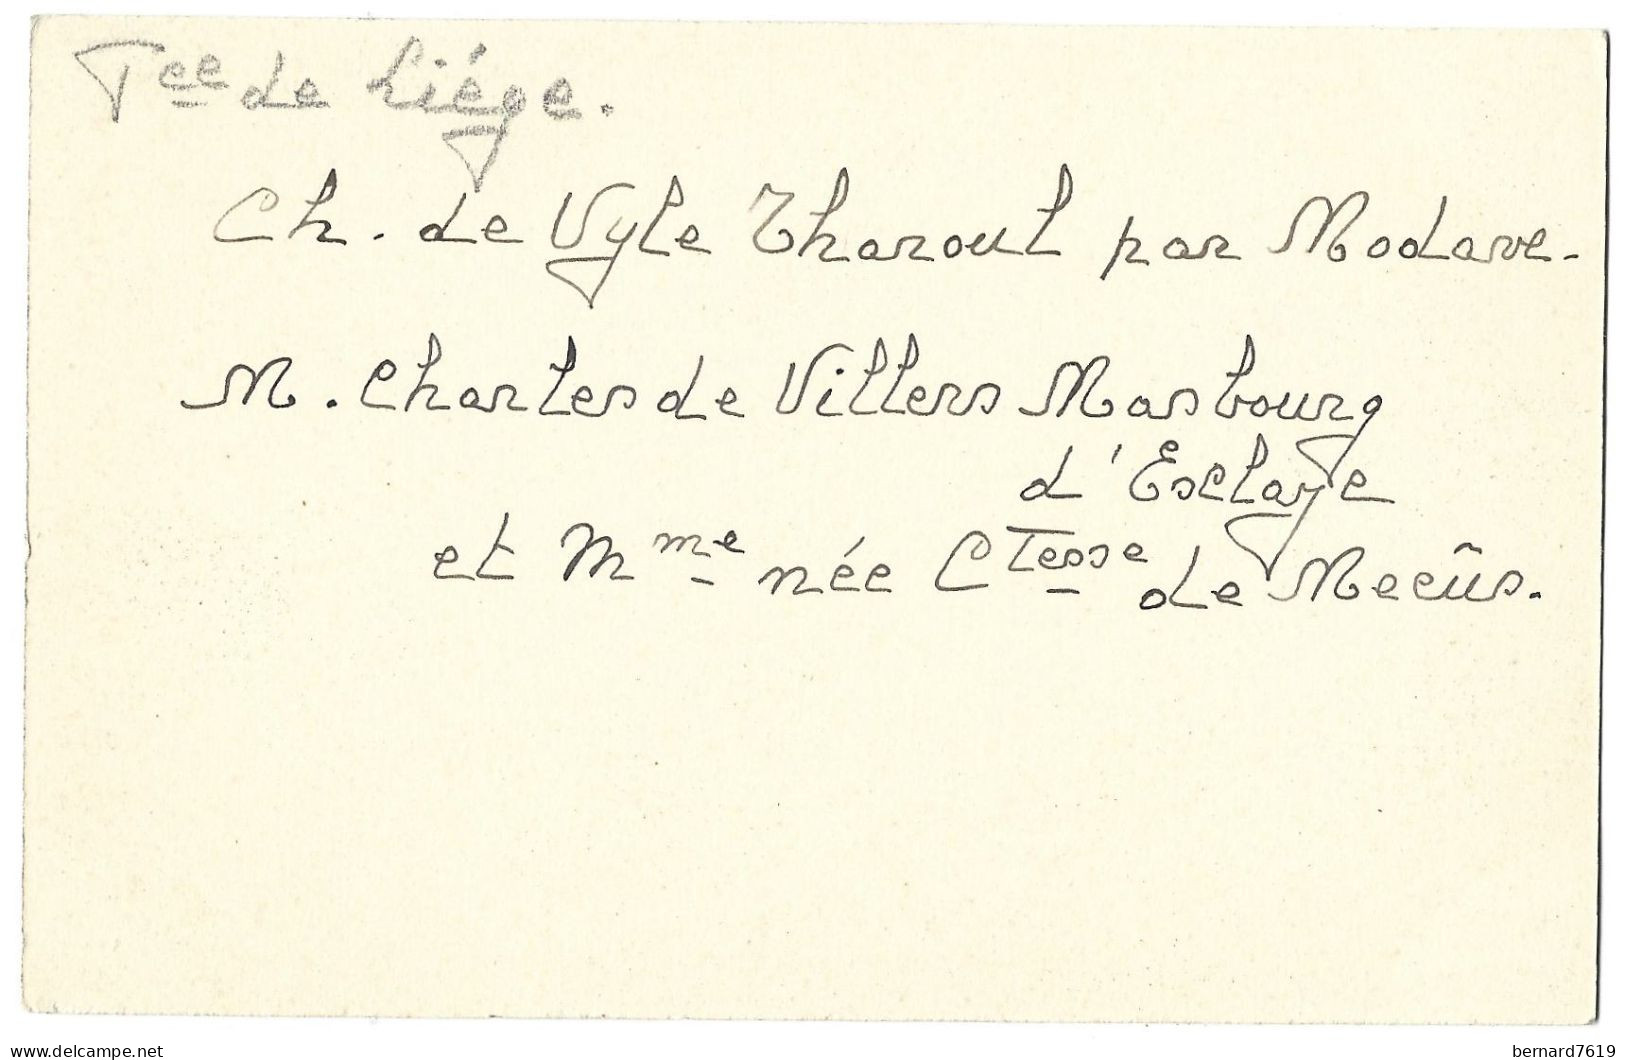 Pce de Liége.
Ch. de Vyle Tharoul par Modave.
M. Charles de Villers Masbourg
d'Esclaye
et Mme née Ctesse de Meeûs.
delcampe.net
bernard7619